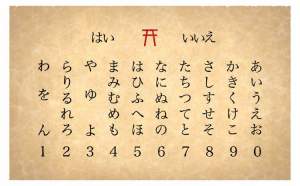 はい いいえ
あいうえお
かきくけこ
さしすせそ
たちつてと
なにぬねの
はひふへほ
まみむめも
や ゆ よ
らりるれろ
わ を ん
1 2 3 4 5 6 7 8 9 0